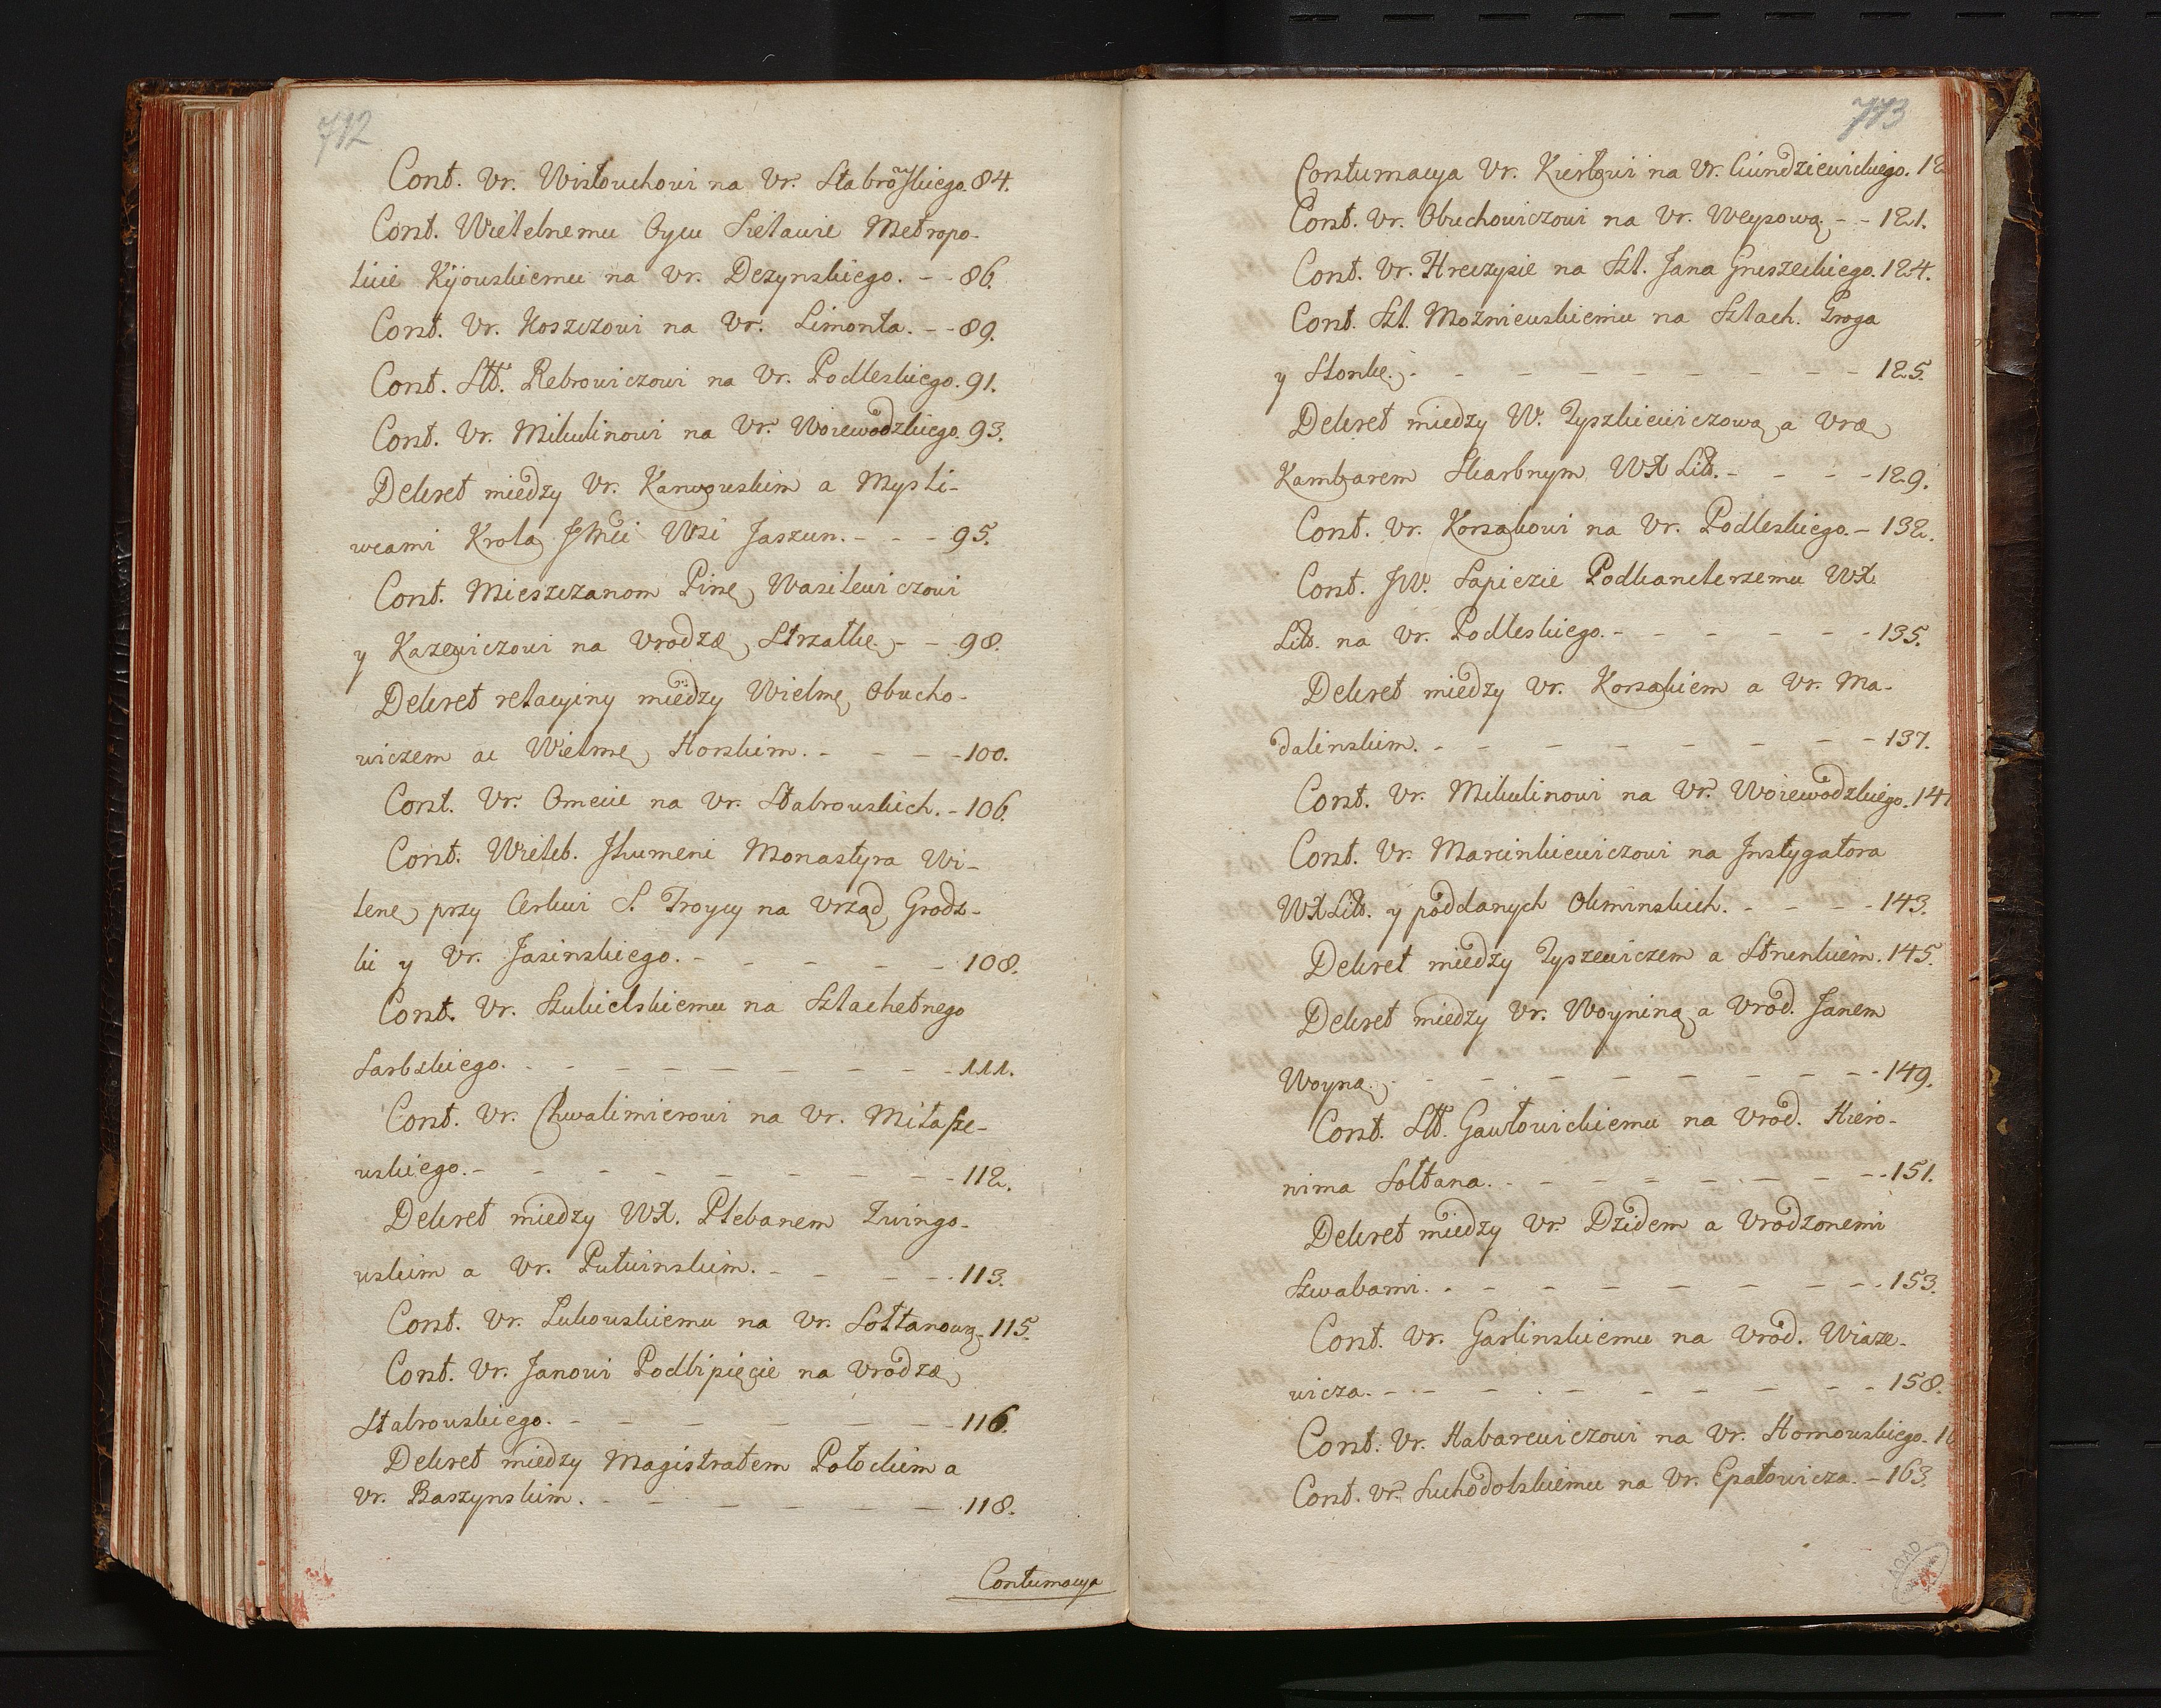 712
Cont. Vr. Wisłouchowi na Vr. Stabrowskiego. 84.
Cont. Wielebnemu Oycu Sielawie Metropo-
licie Kijowskiemu na Vr. Dezynskiego. - - 86.
Cont. Vr. Koszczowi na Vr. Limonta. - - 89.
Cont. Stt. Rebrowiczowi na Vr. Podleskiego. 91.
Cont. Vr. Mikulinowi na Vr. Woiewodzkiego. 93.
Dekret miedzy Vr. Karwowskim a Mysli-
wcami Krola JMci Wsi Jaszun. - - - 95.
Cont. Mieszczanom Pinę Wasilewiczowi
y Kazewiczowi na Vrodzę Strzałkę. - - 98.
Dekret relacyiny miedzy Wielmę Obucho-
wiczem a Wielmę Horskim. - - - - 100.
Cont. Vr. Omecie na Vr. Stabrowskich. - 106.
Cont. Wieleb. Jhumeni Monastyra Wi-
lenę przy Cerkwi S. Troycy na Vrząd Grodz-
ki y Vr. Jasinskiego. - - - - - 108.
Cont. Vr. Szukielskiemu na Szlachetnego
Sarbskiego. - - - - - - - - 111.
Cont. Vr. Chwalimierowi na Vr. Miłasze-
wskiego. - - - - - - - - 112.
Dekret miedzy WX. Plebanem Zwingo-
wskim a Vr. Putwinskim. - - - - 113.
Cont. Vr. Lukowskiemu na Vr. Sołtanową. 115.
Cont. Vr. Janowi Podbipięcie na Vrodzę
Stabrowskiego. - - - - - - - 116.
Dekret miedzy Magistratem Połockim a
Vr. Raszynskim. - - - - - - - 118.
Contumacya
713
Contumacya Vr. Kierłowi na Vr. Ciundziewickiego. 12
Cont. Vr. Obuchowiczowi na Vr. Weysową. - - 121.
Cont. Vr. Hreczysie na Szl. Jana Gruszeckiego. 124.
Cont. Szl. Mozniewskiemu na Szlach. Groga
y Stonkę. - - - - - - - - - 125.
Dekret miedzy W. Tyszkiewiczową a Vrę
Kambarem Skarbnym WX Litt. - - - - 129.
Cont. Vr. Korsakowi na Vr. Podleskiego. - 132.
Cont. JW. Sapiezie Podkanclerzemu WX.
Litt. na Vr. Podleskiego. - - - - - - 135.
Dekret miedzy Vr. Korsakiem a Vr. Ma-
dalinskim. - - - - - - - - - 137.
Cont. Vr. Mikulinowi na Vr. Woiewodzkiego. 141
Cont. Vr. Marcinkiewiczowi na Jnstygatora
WXLitt. y poddanych Okminskich. - - - - 143.
Dekret miedzy Tyszewiczem a Strunkiem. 145.
Dekret miedzy Vr. Woyniną a Vrod. Janem
Woyną. - - - - - - - - - 149.
Cont. Stt. Gawłowickiemu na Vrod. Hiero-
nima Sołtana. - - - - - - - - 151.
Dekret miedzy Vr. Dzidem a Vrodzonemi
Szwabami. - - - - - - - - - 153.
Cont. Vr. Garlinskiemu na Vrod. Wiaze-
wicza. - - - - - - - - - 158.
Cont. Vr. Habarewiczowi na Vr. Homowskiego. 16
Cont. Vr. Suchodolskiemu na Vr. Epatowicza. - 163.
AGAD